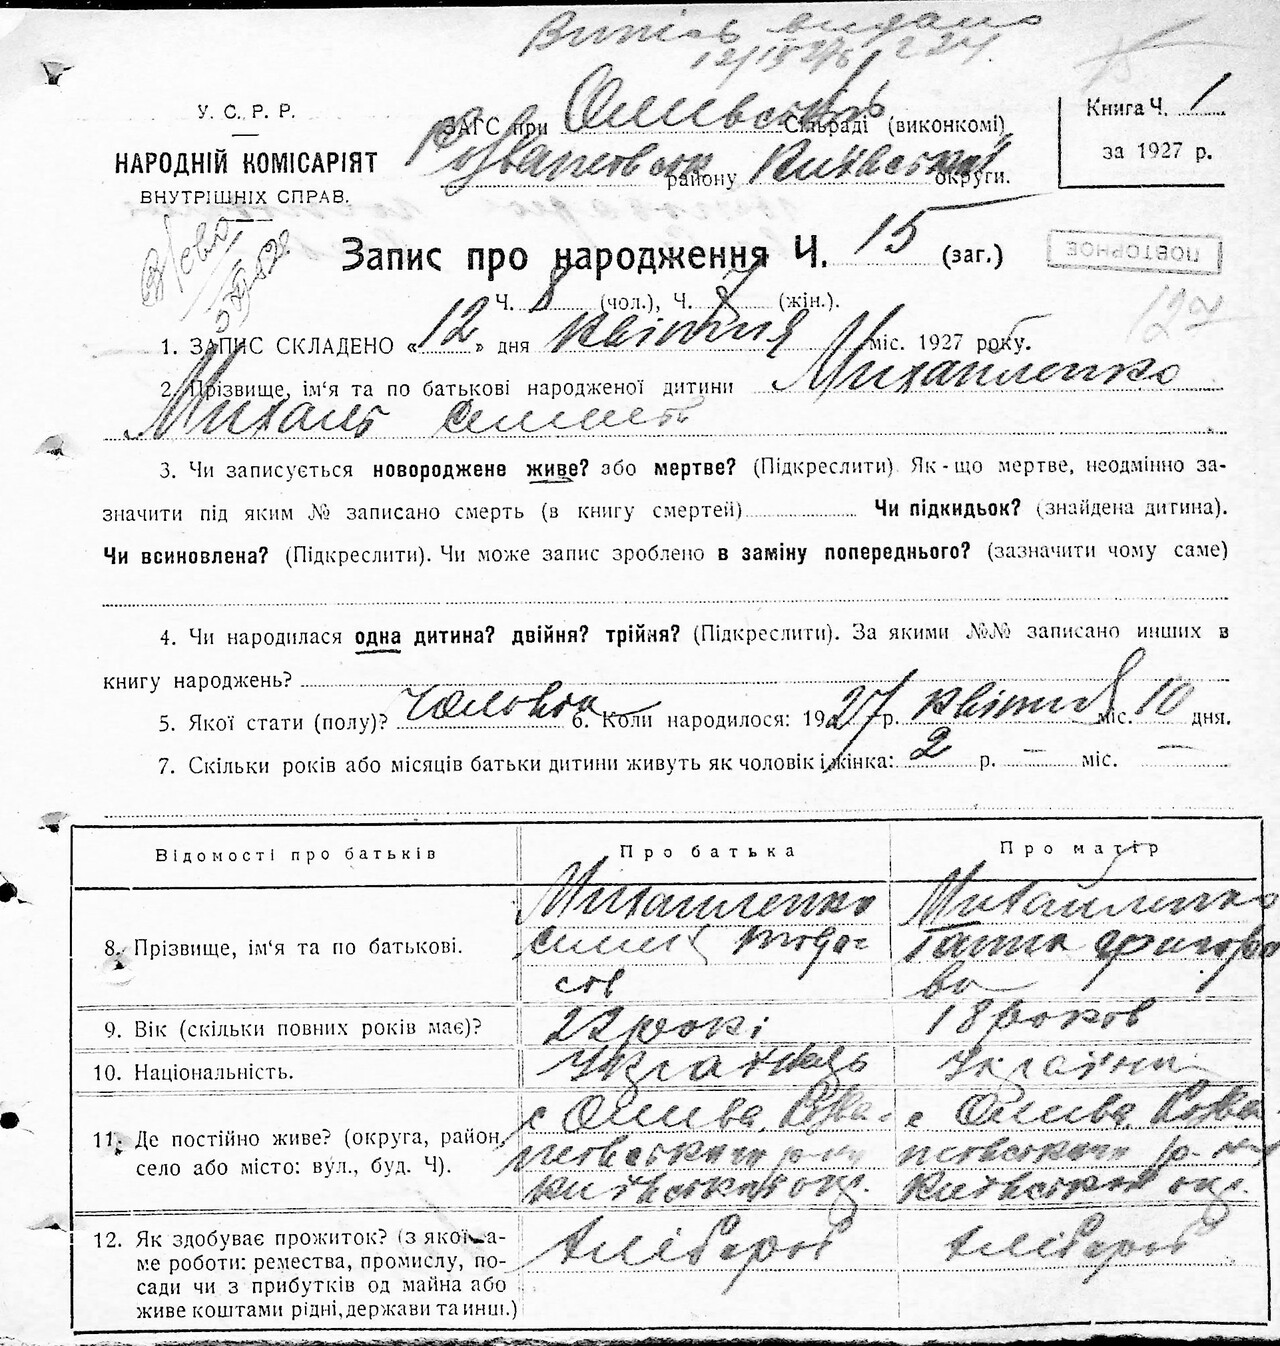 Випись видано
У. С. Р. Р.
НАРОДНІЙ КОМІСАРІЯТ
ВНУТРІШНІХ СПРАВ.
ЗАГС при Олівській Сільраді (виконкомі)
району Київської округи.
Книга Ч. 1
за 1927 р.
ПОВТОРНОЕ
Запис про народження Ч. 15 (заг.)
Ч. 8 (чол.), Ч. (жін.).
1. ЗАПИС СКЛАДЕНО «12» дня квітня міс. 1927 року.
2. Прізвище, ім'я та по батькові народженої дитини Михайленко
Михаль
3. Чи записується новороджене живе? або мертве? (Підкреслити) Як-що мертве, неодмінно за-
значити під яким № записано смерть (в книгу смертей) Чи підкидьок? (знайдена дитина).
Чи всиновлена? (Підкреслити). Чи може запис зроблено в заміну попереднього? (зазначити чому саме)
4. Чи народилася одна дитина? двійня? трійня? (Підкреслити). За якими №№ записано инших в
книгу народжень?
5. Якої стати (полу)? Чоловіча 6. Коли народилося: 1927 р. квітня міс. 10 дня.
7. Скільки років або місяців батьки дитини живуть як чоловік і жінка: 2 р. — міс. —
Відомості про батьків
Про батька
Про матір
8. Прізвище, ім'я та по батькові.
Михайленко
Михайленко
Ганна
9. Вік (скільки повних років має)?
22 рокі
18 роков
10. Національність.
Українець
Українка
11. Де постійно живе? (округа, район,
село або місто: вул., буд. Ч).
с Олива, Розва-
жевського р-ну
Київської окр.
с Олива Розва
жевського р-ну
Київської окр.
12. Як здобуває прожиток? (з якої са-
ме роботи: ремества, промислу, по-
сади чи з прибутків од майна або
живе коштами рідні, держави та инш.)
Хлібороб
Хлібороб